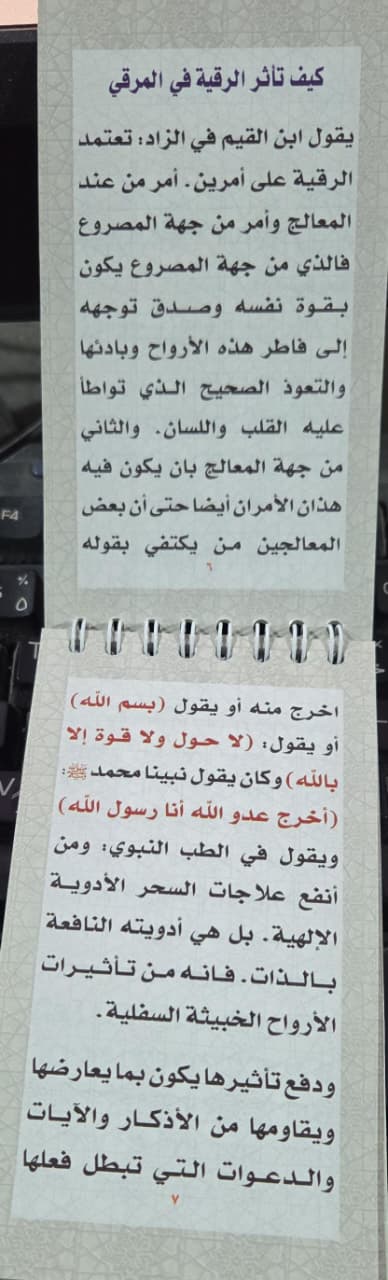 كيف تأثر الرقية في المرقي
يقول ابن القيم في الزاد: تعتمد
الرقية على أمرين. أمر من عند
المعالج وأمر من جهة المصروع
فالذي من جهة المصروع يكون
بقوة نفسه وصدق توجهه
إلى فاطر هذه الأرواح وبادئها
والتعوذ الصحيح الذي تواطأ
عليه القلب واللسان. والثاني
من جهة المعالج بان يكون فيه
هذان الأمران أيضا حتى أن بعض
المعالجين من يكتفي بقوله
٦
اخرج منه أو يقول (بسم الله)
أو يقول: (لا حول ولا قوة إلا
بالله) وكان يقول نبينا محمد ﷺ:
(أخرج عدو الله أنا رسول الله)
ويقول في الطب النبوي: ومن
أنفع علاجات السحر الأدوية
الإلهية. بل هي أدويته النافعة
بالذات. فانه من تأثيرات
الأرواح الخبيثة السفلية.
ودفع تأثيرها يكون بما يعارضها
ويقاومها من الأذكار والآيات
والدعوات التي تبطل فعلها
٧
F4
%
٥